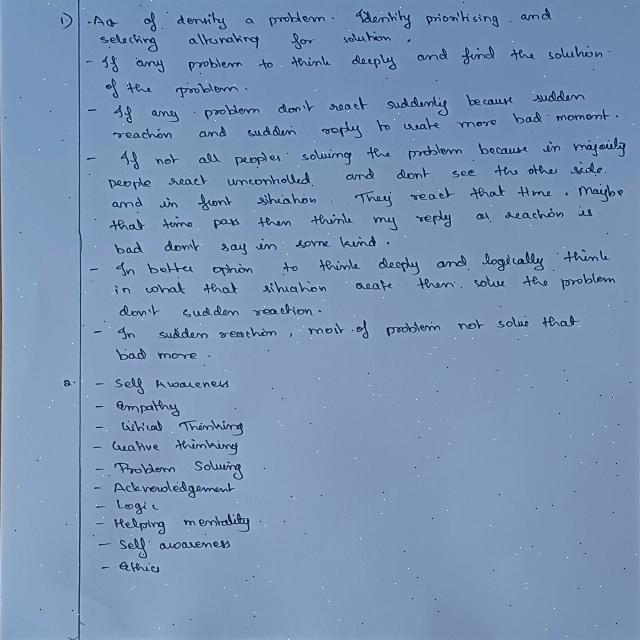 1) . Act of density a problem. Identity prioritising and
selecting alternating for solution.
- If any problem to think deeply and find the solution
of the problem.
- If any problem don't react suddenly because sudden
reaction and sudden reply to create more bad moment.
- If not all peoples solving the problem because in majority
people react uncontrolled and dont see the other side.
and in front situation. They react that time. Maybe
that time pass then think my reply or reaction is
bad don't say in some kind.
- In better option to think deeply and logically think
in what that situation create then solve the problem
don't sudden reaction.
- In sudden reaction, most of problem not solve that
bad more.
2. - Self Awareness
- Empathy
- Critical Thinking
- Creative thinking
- Problem Solving
- Acknowledgement
- Logic
- Helping mentality
- Self awareness
- Ethics